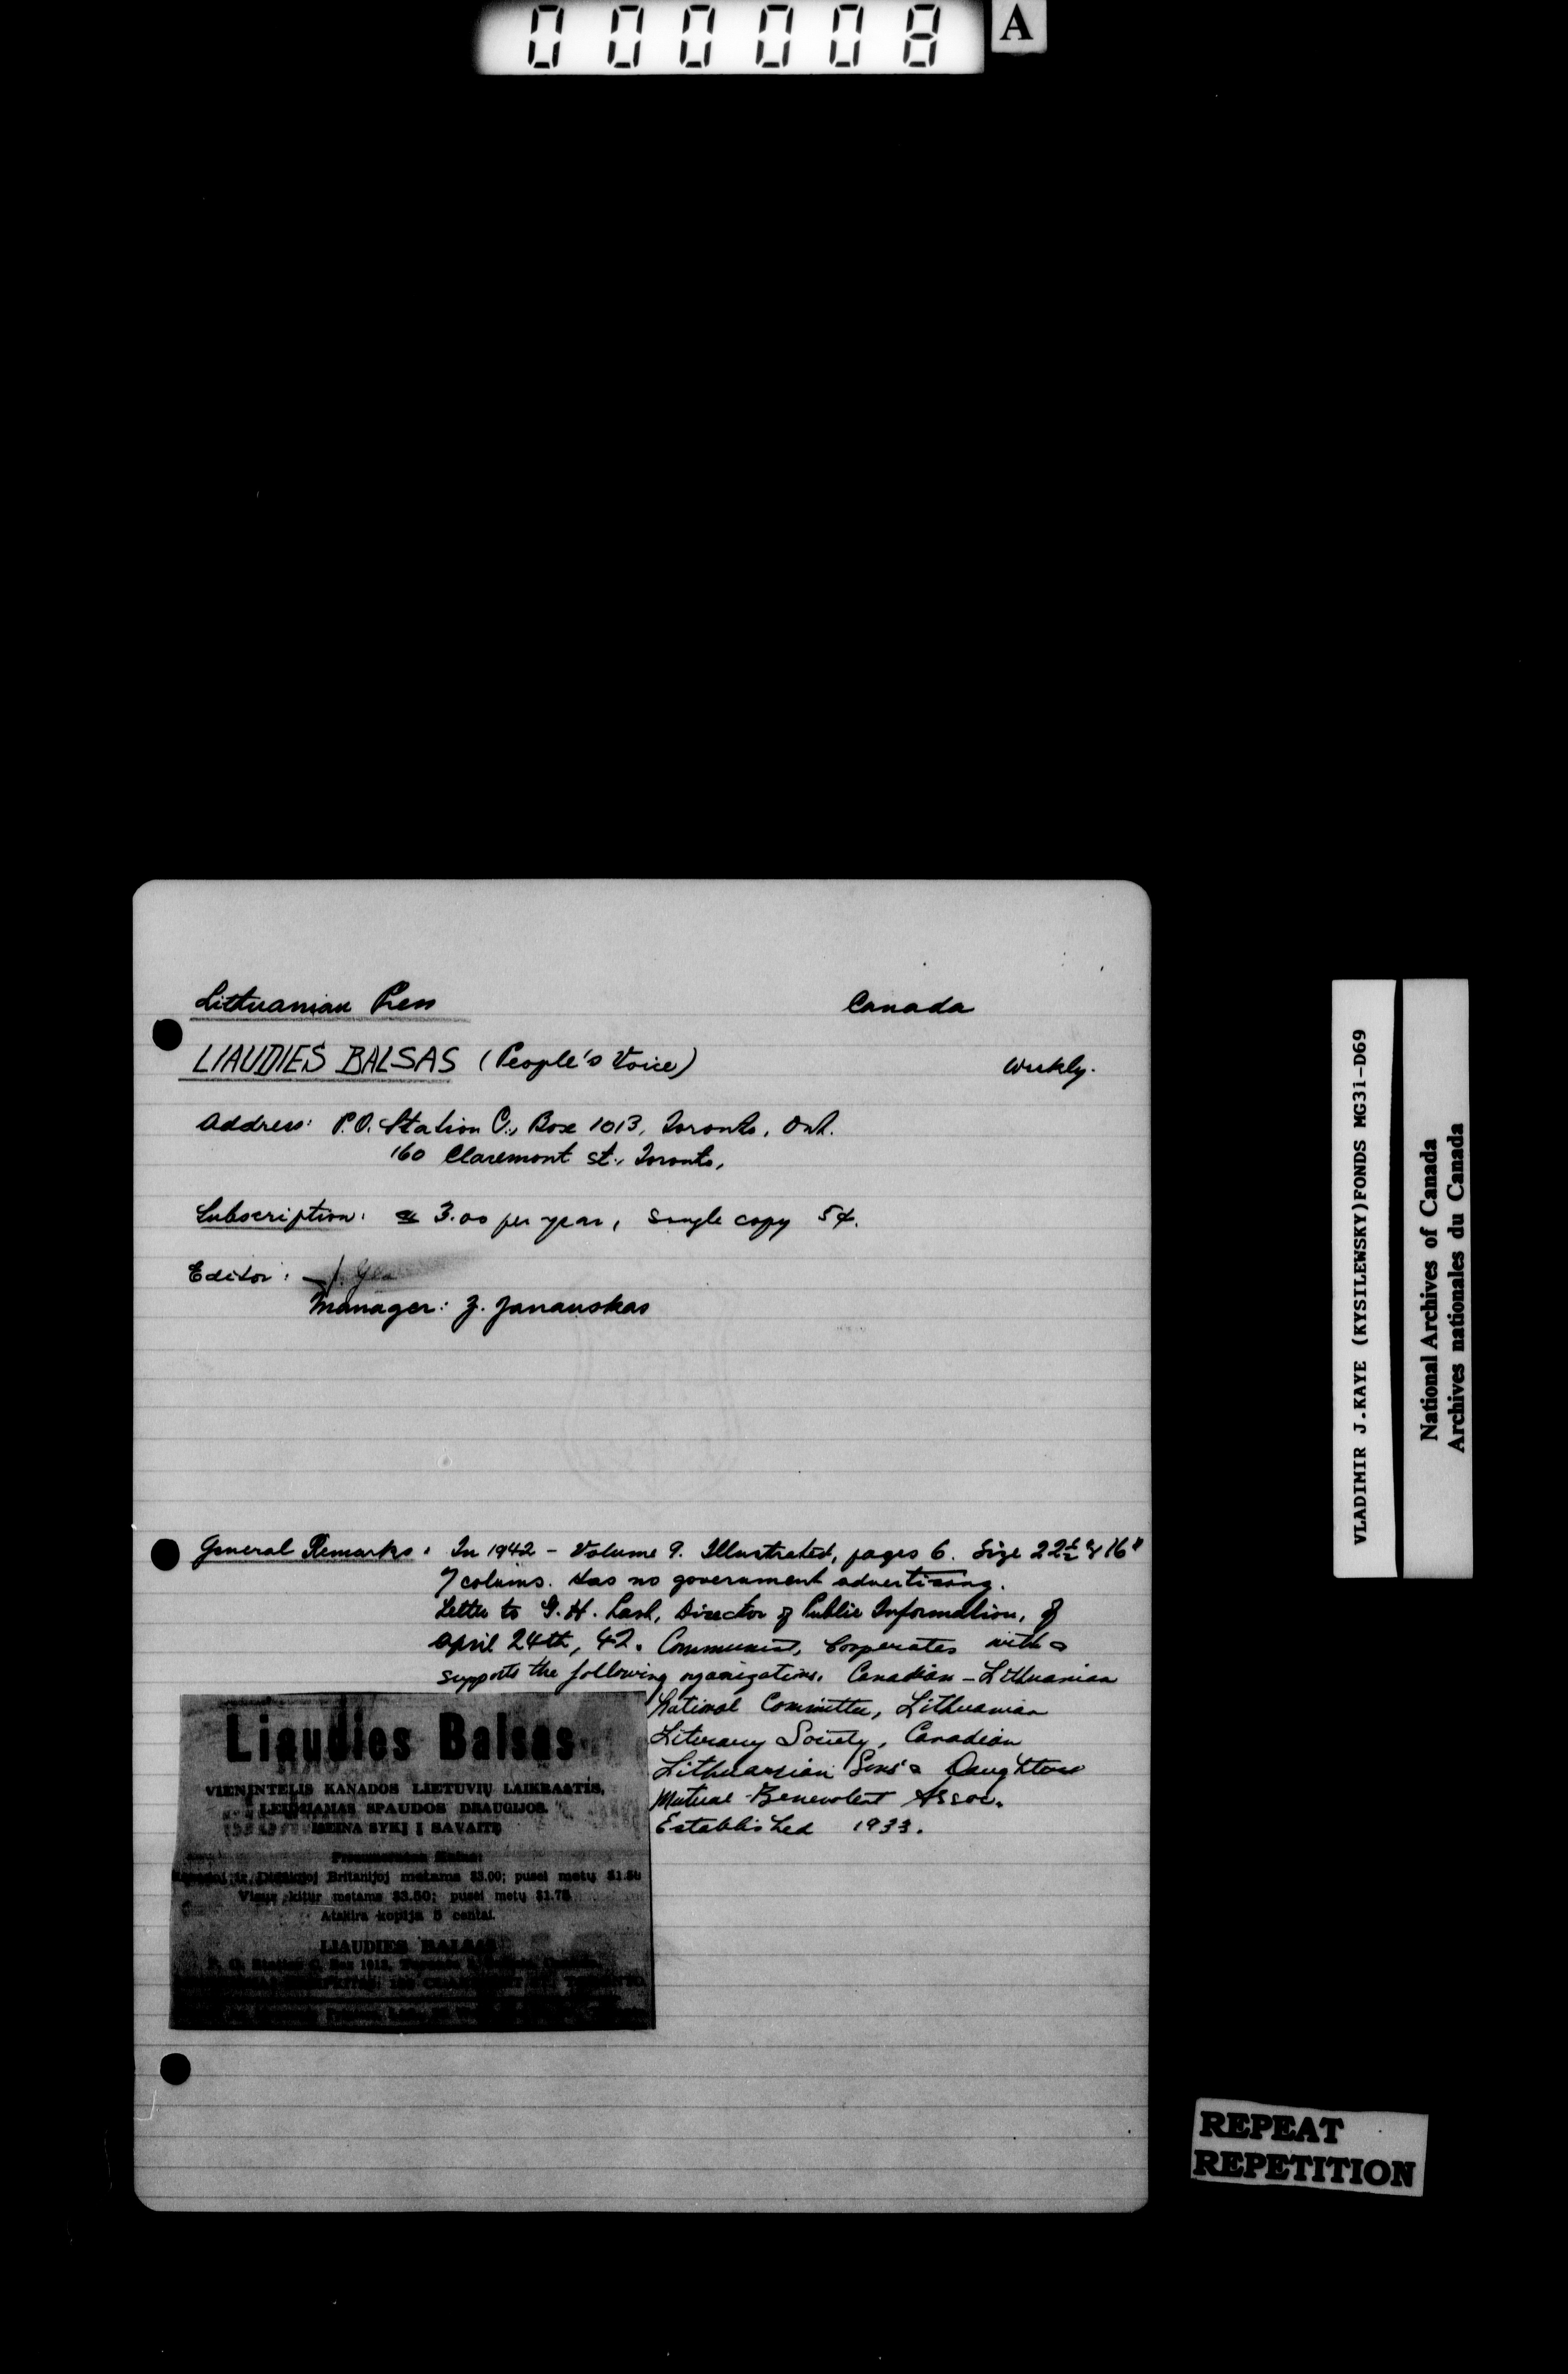 000008 A
Lithuanian Press Canada
LIAUDIES BALSAS (People's Voice) Weekly.
Address: P.O. Station C., Box 1013, Toronto, Ont.
160 Claremont st., Toronto,
Subscription: 3.00 per year, single copy 5¢.
Editor: J.
Manager: J. Janauskas
General Remarks: In 1942 - Volume 9. Illustrated, pages 6. Size 22½ x 16"
7 colums. Has no government advertising.
Letter to G.H. Lash, Director of Public Information, of
April 24th, 42. Communist, Cooperates with &
supports the following organizations. Canadian-Lithuanian
National Committee, Lithuanian
Literary Society, Canadian
Lithuanian Sons & Daughters
Mutual-Benevolent Assoc.
Established 1933.
Liaudies Balsas
VIENINTELIS KANADOS LIETUVIŲ LAIKRAŠTIS,
LEIDŽIAMAS SPAUDOS DRAUGIJOS.
IŠEINA SYKĮ Į SAVAITĘ
Kanadoj ir Didžiojoj Britanijoj metams $3.00; pusei metų $1.50
Visur kitur metams $3.50; pusei metų $1.75
Atskira kopija 5 centai.
LIAUDIES BALSAS
P. O. Station C, Box 1013,
VLADIMIR J.KAYE (KYSILEWSKY)FONDS MG31-D69
National Archives of Canada
Archives nationales du Canada
REPEAT
REPETITION